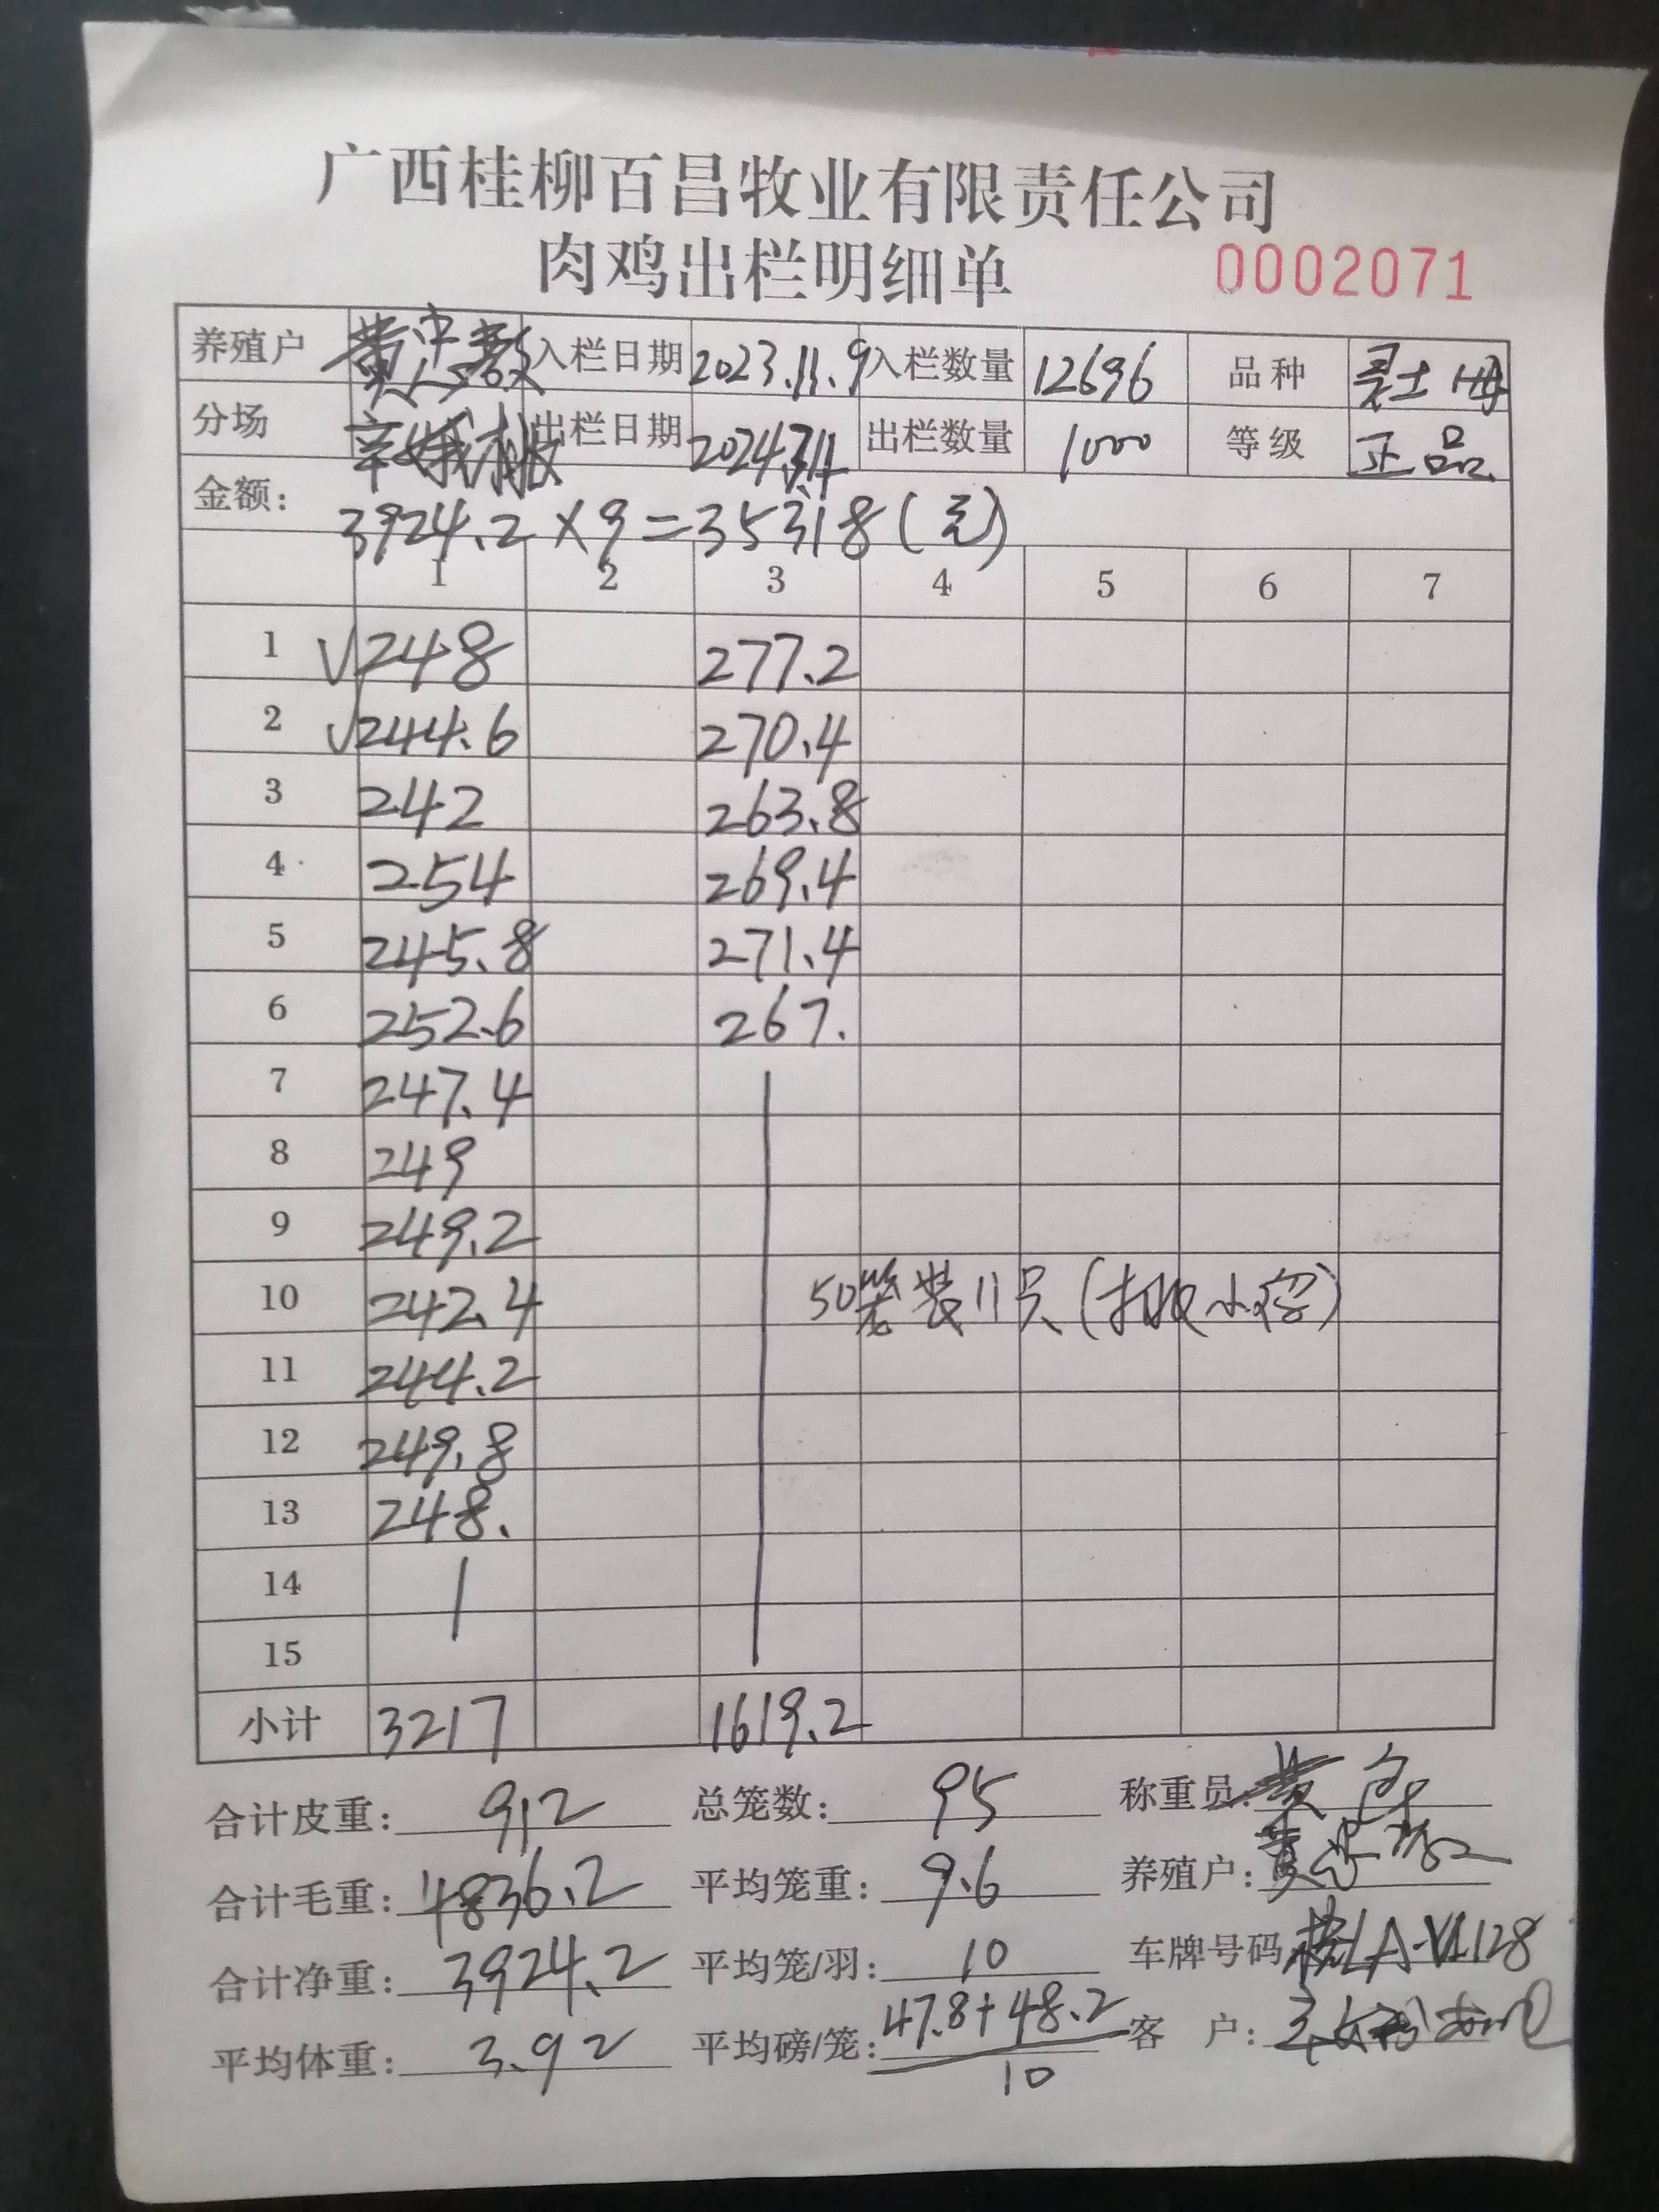 广西桂柳百昌牧业有限责任公司
肉鸡出栏明细单 0002071
养殖户 入栏日期 2023.11.9 入栏数量 12696 品种
分场 出栏日期 出栏数量 1000 等级 正品
金额: 3924.2×9=35318(元)
1 2 3 4 5 6 7
1 √248 277.2
2 √244.6 270.4
3 242 263.8
4 254 269.4
5 245.8 271.4
6 252.6 267.
7 247.4
8 249
9 249.2
10 242.4 50笼装11只
11 244.2
12 249.8
13 248.
14
15
小计 3217 1619.2
合计皮重: 912 总笼数: 95 称重员:
合计毛重: 4836.2 平均笼重: 9.6 养殖户:
合计净重: 3924.2 平均笼/羽: 10 车牌号码:
平均体重: 3.92 平均磅/笼: 47.8+48.2 客 户:
10